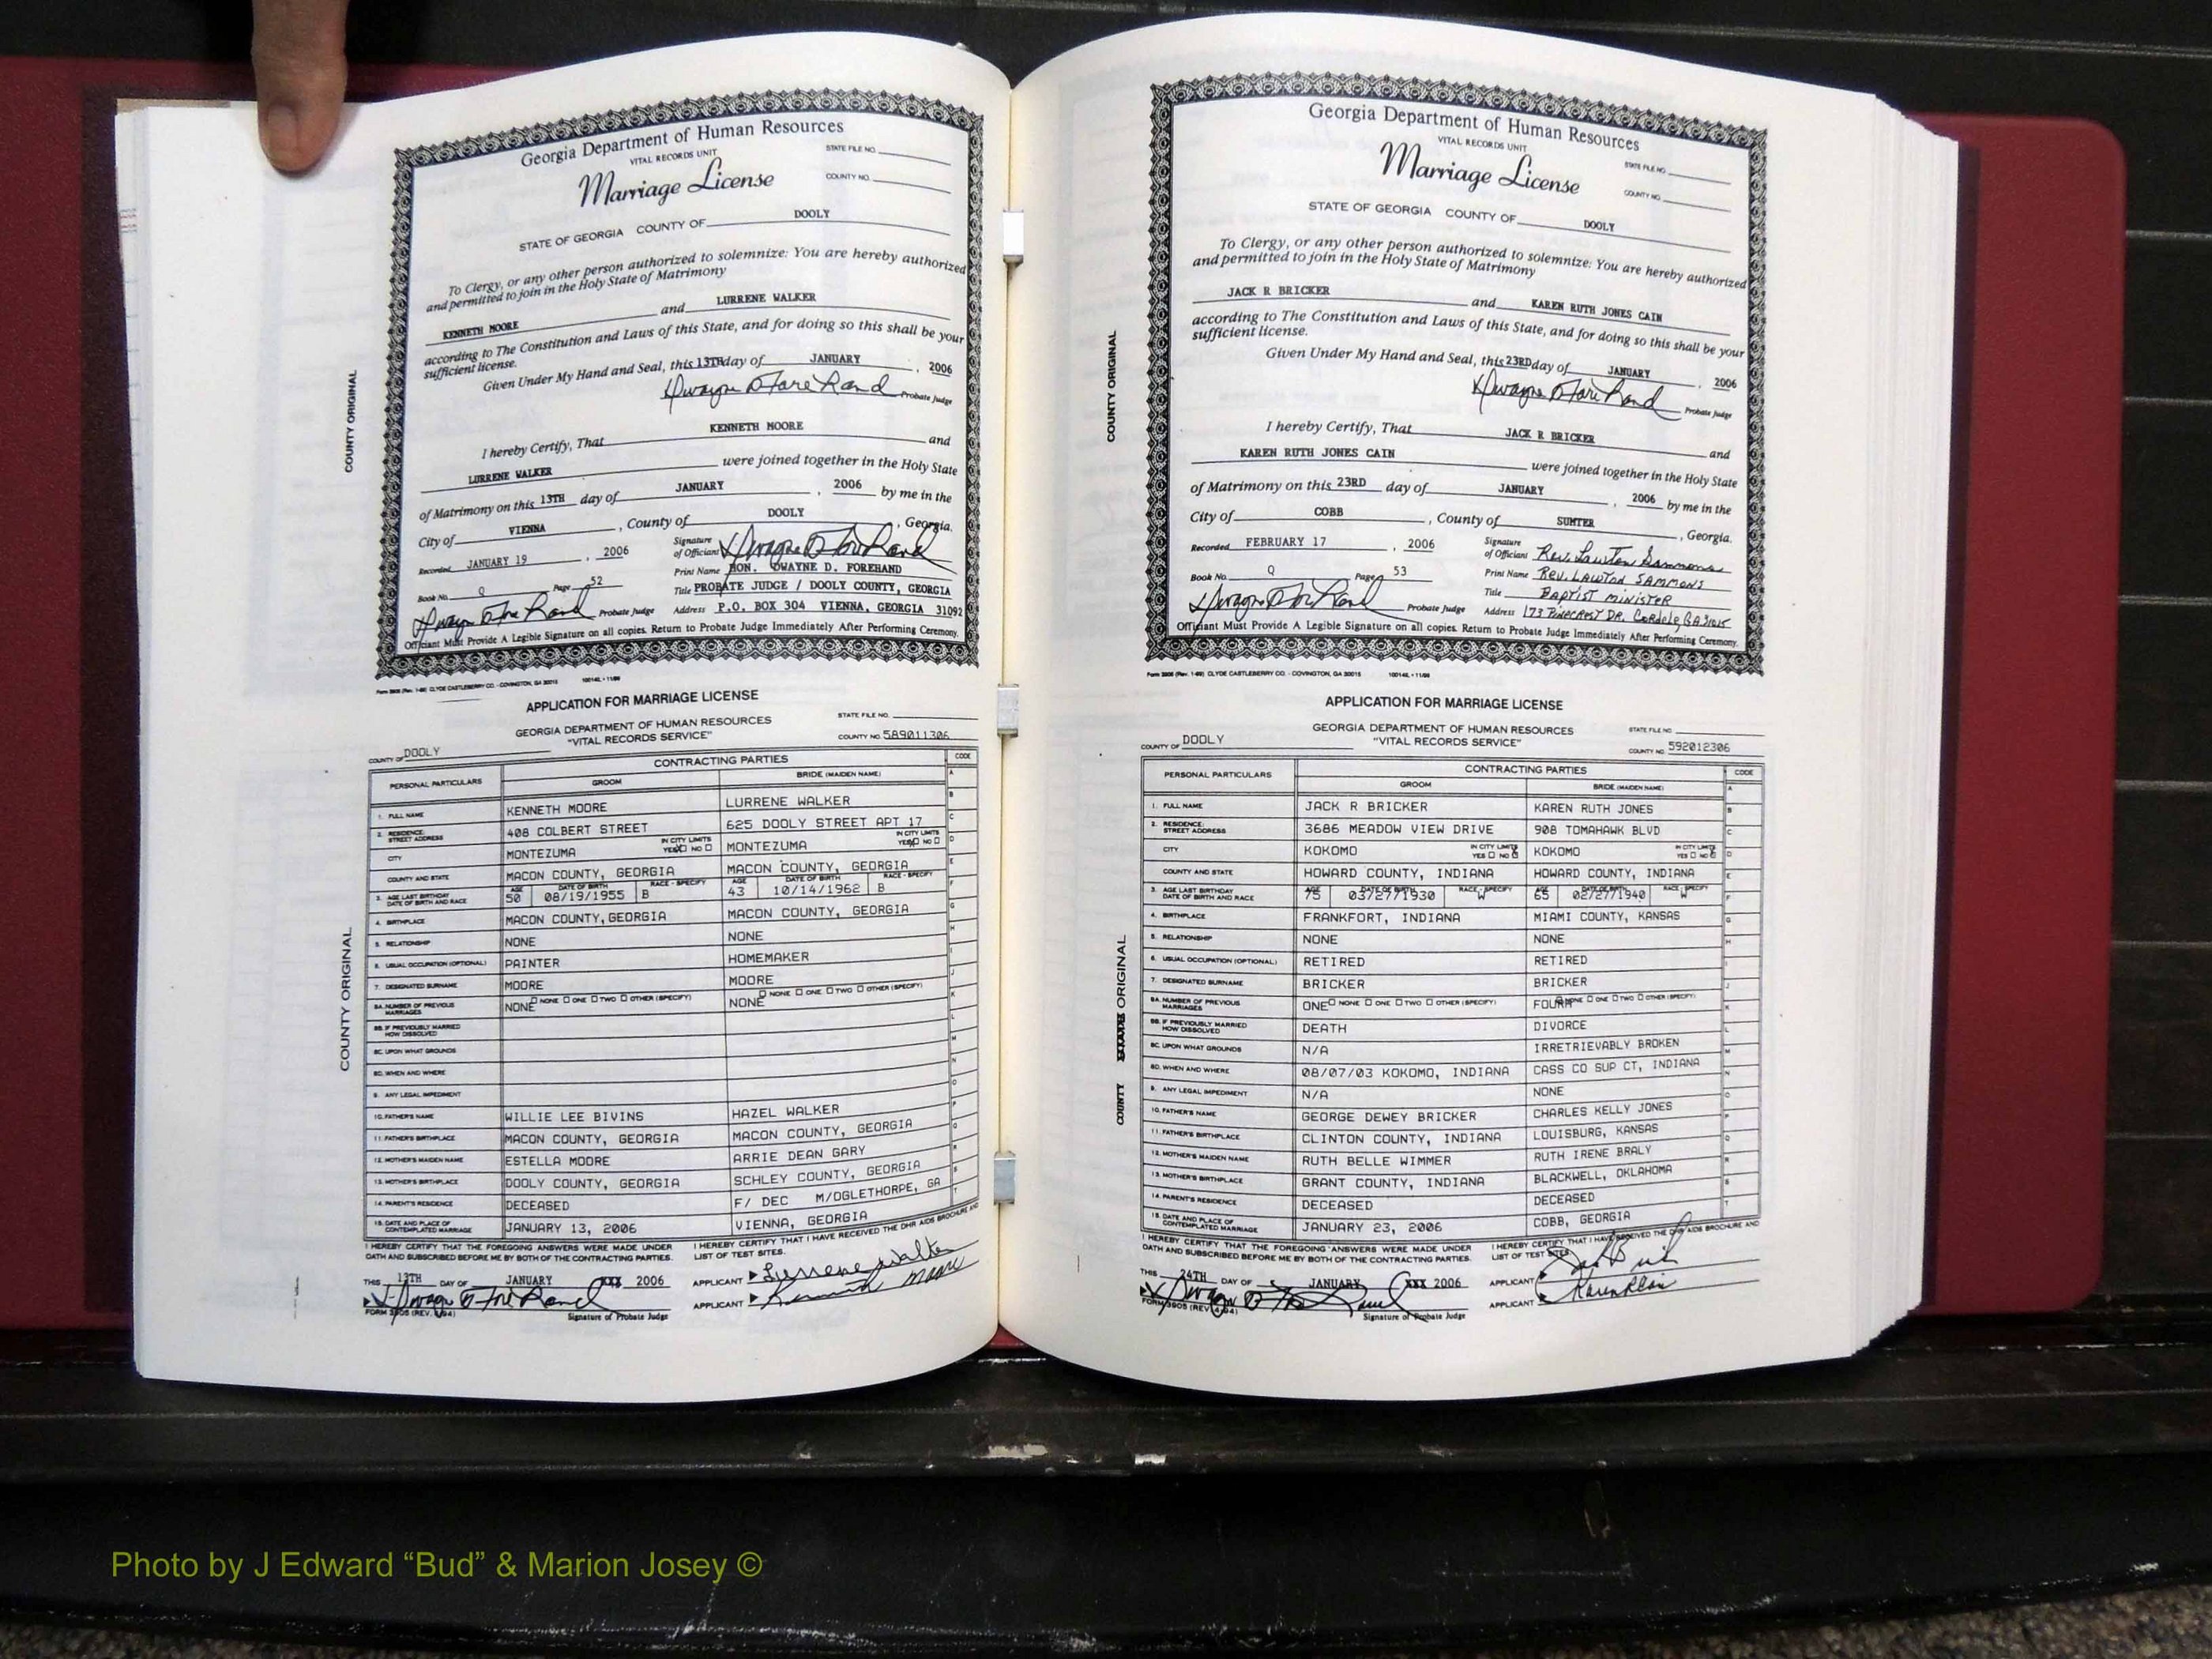 Georgia Department of Human Resources
VITAL RECORDS UNIT
STATE FILE NO.
Marriage License
COUNTY NO.
STATE OF GEORGIA COUNTY OF DOOLY
To Clergy, or any other person authorized to solemnize: You are hereby authorized
and permitted to join in the Holy State of Matrimony
KENNETH MOORE and LURRENE WALKER
according to The Constitution and Laws of this State, and for doing so this shall be your
sufficient license.
Given Under My Hand and Seal, this 13TH day of JANUARY, 2006
Probate Judge
I hereby Certify, That KENNETH MOORE and
LURRENE WALKER were joined together in the Holy State
of Matrimony on this 13TH day of JANUARY, 2006 by me in the
City of VIENNA, County of DOOLY, Georgia.
Recorded JANUARY 19, 2006 Signature of Officiant
Print Name HON. DWAYNE D. FOREHAND
Book No. Q Page 52 Title PROBATE JUDGE / DOOLY COUNTY, GEORGIA
Probate Judge Address P.O. BOX 304 VIENNA, GEORGIA 31092
Officiant Must Provide A Legible Signature on all copies. Return to Probate Judge Immediately After Performing Ceremony.
COUNTY ORIGINAL
APPLICATION FOR MARRIAGE LICENSE
GEORGIA DEPARTMENT OF HUMAN RESOURCES
"VITAL RECORDS SERVICE"
STATE FILE NO.
COUNTY NO. 589011306
COUNTY OF DOOLY
PERSONAL PARTICULARS CONTRACTING PARTIES CODE
GROOM BRIDE (MAIDEN NAME)
1. FULL NAME KENNETH MOORE LURRENE WALKER
2. RESIDENCE: STREET ADDRESS 408 COLBERT STREET 625 DOOLY STREET APT 17
CITY MONTEZUMA IN CITY LIMITS YES NO MONTEZUMA IN CITY LIMITS YES NO
COUNTY AND STATE MACON COUNTY, GEORGIA MACON COUNTY, GEORGIA
3. AGE LAST BIRTHDAY DATE OF BIRTH AND RACE AGE 50 DATE OF BIRTH 08/19/1955 RACE - SPECIFY B AGE 43 DATE OF BIRTH 10/14/1962 RACE - SPECIFY B
4. BIRTHPLACE MACON COUNTY, GEORGIA MACON COUNTY, GEORGIA
5. RELATIONSHIP NONE NONE
6. USUAL OCCUPATION (OPTIONAL) PAINTER HOMEMAKER
7. DESIGNATED SURNAME MOORE MOORE
8A. NUMBER OF PREVIOUS MARRIAGES NONE □ NONE □ ONE □ TWO □ OTHER (SPECIFY) NONE □ NONE □ ONE □ TWO □ OTHER (SPECIFY)
8B. IF PREVIOUSLY MARRIED HOW DISSOLVED
8C. UPON WHAT GROUNDS
8D. WHEN AND WHERE
9. ANY LEGAL IMPEDIMENT
10. FATHER'S NAME WILLIE LEE BIVINS HAZEL WALKER
11. FATHER'S BIRTHPLACE MACON COUNTY, GEORGIA MACON COUNTY, GEORGIA
12. MOTHER'S MAIDEN NAME ESTELLA MOORE ARRIE DEAN GARY
13. MOTHER'S BIRTHPLACE DOOLY COUNTY, GEORGIA SCHLEY COUNTY, GEORGIA
14. PARENT'S RESIDENCE DECEASED F/ DEC M/OGLETHORPE, GA
15. DATE AND PLACE OF CONTEMPLATED MARRIAGE JANUARY 13, 2006 VIENNA, GEORGIA
I HEREBY CERTIFY THAT THE FOREGOING ANSWERS WERE MADE UNDER I HEREBY CERTIFY THAT I HAVE RECEIVED THE DHR AIDS BROCHURE AND
OATH AND SUBSCRIBED BEFORE ME BY BOTH OF THE CONTRACTING PARTIES. LIST OF TEST SITES.
THIS 13TH DAY OF JANUARY XXX 2006 APPLICANT Lurrene Walker
APPLICANT Kenneth Moore
FORM 3905 (REV. 4/94) Signature of Probate Judge
COUNTY ORIGINAL
Georgia Department of Human Resources
VITAL RECORDS UNIT
STATE FILE NO.
Marriage License
COUNTY NO.
STATE OF GEORGIA COUNTY OF DOOLY
To Clergy, or any other person authorized to solemnize: You are hereby authorized
and permitted to join in the Holy State of Matrimony
JACK R BRICKER and KAREN RUTH JONES CAIN
according to The Constitution and Laws of this State, and for doing so this shall be your
sufficient license.
Given Under My Hand and Seal, this 23RD day of JANUARY, 2006
Probate Judge
I hereby Certify, That JACK R BRICKER and
KAREN RUTH JONES CAIN were joined together in the Holy State
of Matrimony on this 23RD day of JANUARY, 2006 by me in the
City of COBB, County of SUMTER, Georgia.
Recorded FEBRUARY 17, 2006 Signature of Officiant Rev. Lawton Sammons
Print Name Rev. LAWTON SAMMONS
Book No. Q Page 53 Title BAPTIST MINISTER
Probate Judge Address 173 PINECREST DR. Cordele GA 31015
Officiant Must Provide A Legible Signature on all copies. Return to Probate Judge Immediately After Performing Ceremony.
COUNTY ORIGINAL
APPLICATION FOR MARRIAGE LICENSE
GEORGIA DEPARTMENT OF HUMAN RESOURCES
"VITAL RECORDS SERVICE"
STATE FILE NO.
COUNTY NO. 592012306
COUNTY OF DOOLY
PERSONAL PARTICULARS CONTRACTING PARTIES CODE
GROOM BRIDE (MAIDEN NAME)
1. FULL NAME JACK R BRICKER KAREN RUTH JONES
2. RESIDENCE: STREET ADDRESS 3686 MEADOW VIEW DRIVE 908 TOMAHAWK BLVD
CITY KOKOMO IN CITY LIMITS YES NO KOKOMO IN CITY LIMITS YES NO
COUNTY AND STATE HOWARD COUNTY, INDIANA HOWARD COUNTY, INDIANA
3. AGE LAST BIRTHDAY DATE OF BIRTH AND RACE AGE 75 DATE OF BIRTH 03/27/1930 RACE - SPECIFY W AGE 65 DATE OF BIRTH 02/27/1940 RACE - SPECIFY W
4. BIRTHPLACE FRANKFORT, INDIANA MIAMI COUNTY, KANSAS
5. RELATIONSHIP NONE NONE
6. USUAL OCCUPATION (OPTIONAL) RETIRED RETIRED
7. DESIGNATED SURNAME BRICKER BRICKER
8A. NUMBER OF PREVIOUS MARRIAGES ONE □ NONE □ ONE □ TWO □ OTHER (SPECIFY) FOUR □ NONE □ ONE □ TWO □ OTHER (SPECIFY)
8B. IF PREVIOUSLY MARRIED HOW DISSOLVED DEATH DIVORCE
8C. UPON WHAT GROUNDS N/A IRRETRIEVABLY BROKEN
8D. WHEN AND WHERE 08/07/03 KOKOMO, INDIANA CASS CO SUP CT, INDIANA
9. ANY LEGAL IMPEDIMENT N/A NONE
10. FATHER'S NAME GEORGE DEWEY BRICKER CHARLES KELLY JONES
11. FATHER'S BIRTHPLACE CLINTON COUNTY, INDIANA LOUISBURG, KANSAS
12. MOTHER'S MAIDEN NAME RUTH BELLE WIMMER RUTH IRENE BRALY
13. MOTHER'S BIRTHPLACE GRANT COUNTY, INDIANA BLACKWELL, OKLAHOMA
14. PARENT'S RESIDENCE DECEASED DECEASED
15. DATE AND PLACE OF CONTEMPLATED MARRIAGE JANUARY 23, 2006 COBB, GEORGIA
I HEREBY CERTIFY THAT THE FOREGOING ANSWERS WERE MADE UNDER I HEREBY CERTIFY THAT I HAVE RECEIVED THE DHR AIDS BROCHURE AND
OATH AND SUBSCRIBED BEFORE ME BY BOTH OF THE CONTRACTING PARTIES. LIST OF TEST SITES.
THIS 24TH DAY OF JANUARY XXX 2006 APPLICANT
APPLICANT
FORM 3905 (REV. 4/94) Signature of Probate Judge
COUNTY ORIGINAL
Photo by J Edward “Bud” & Marion Josey ©